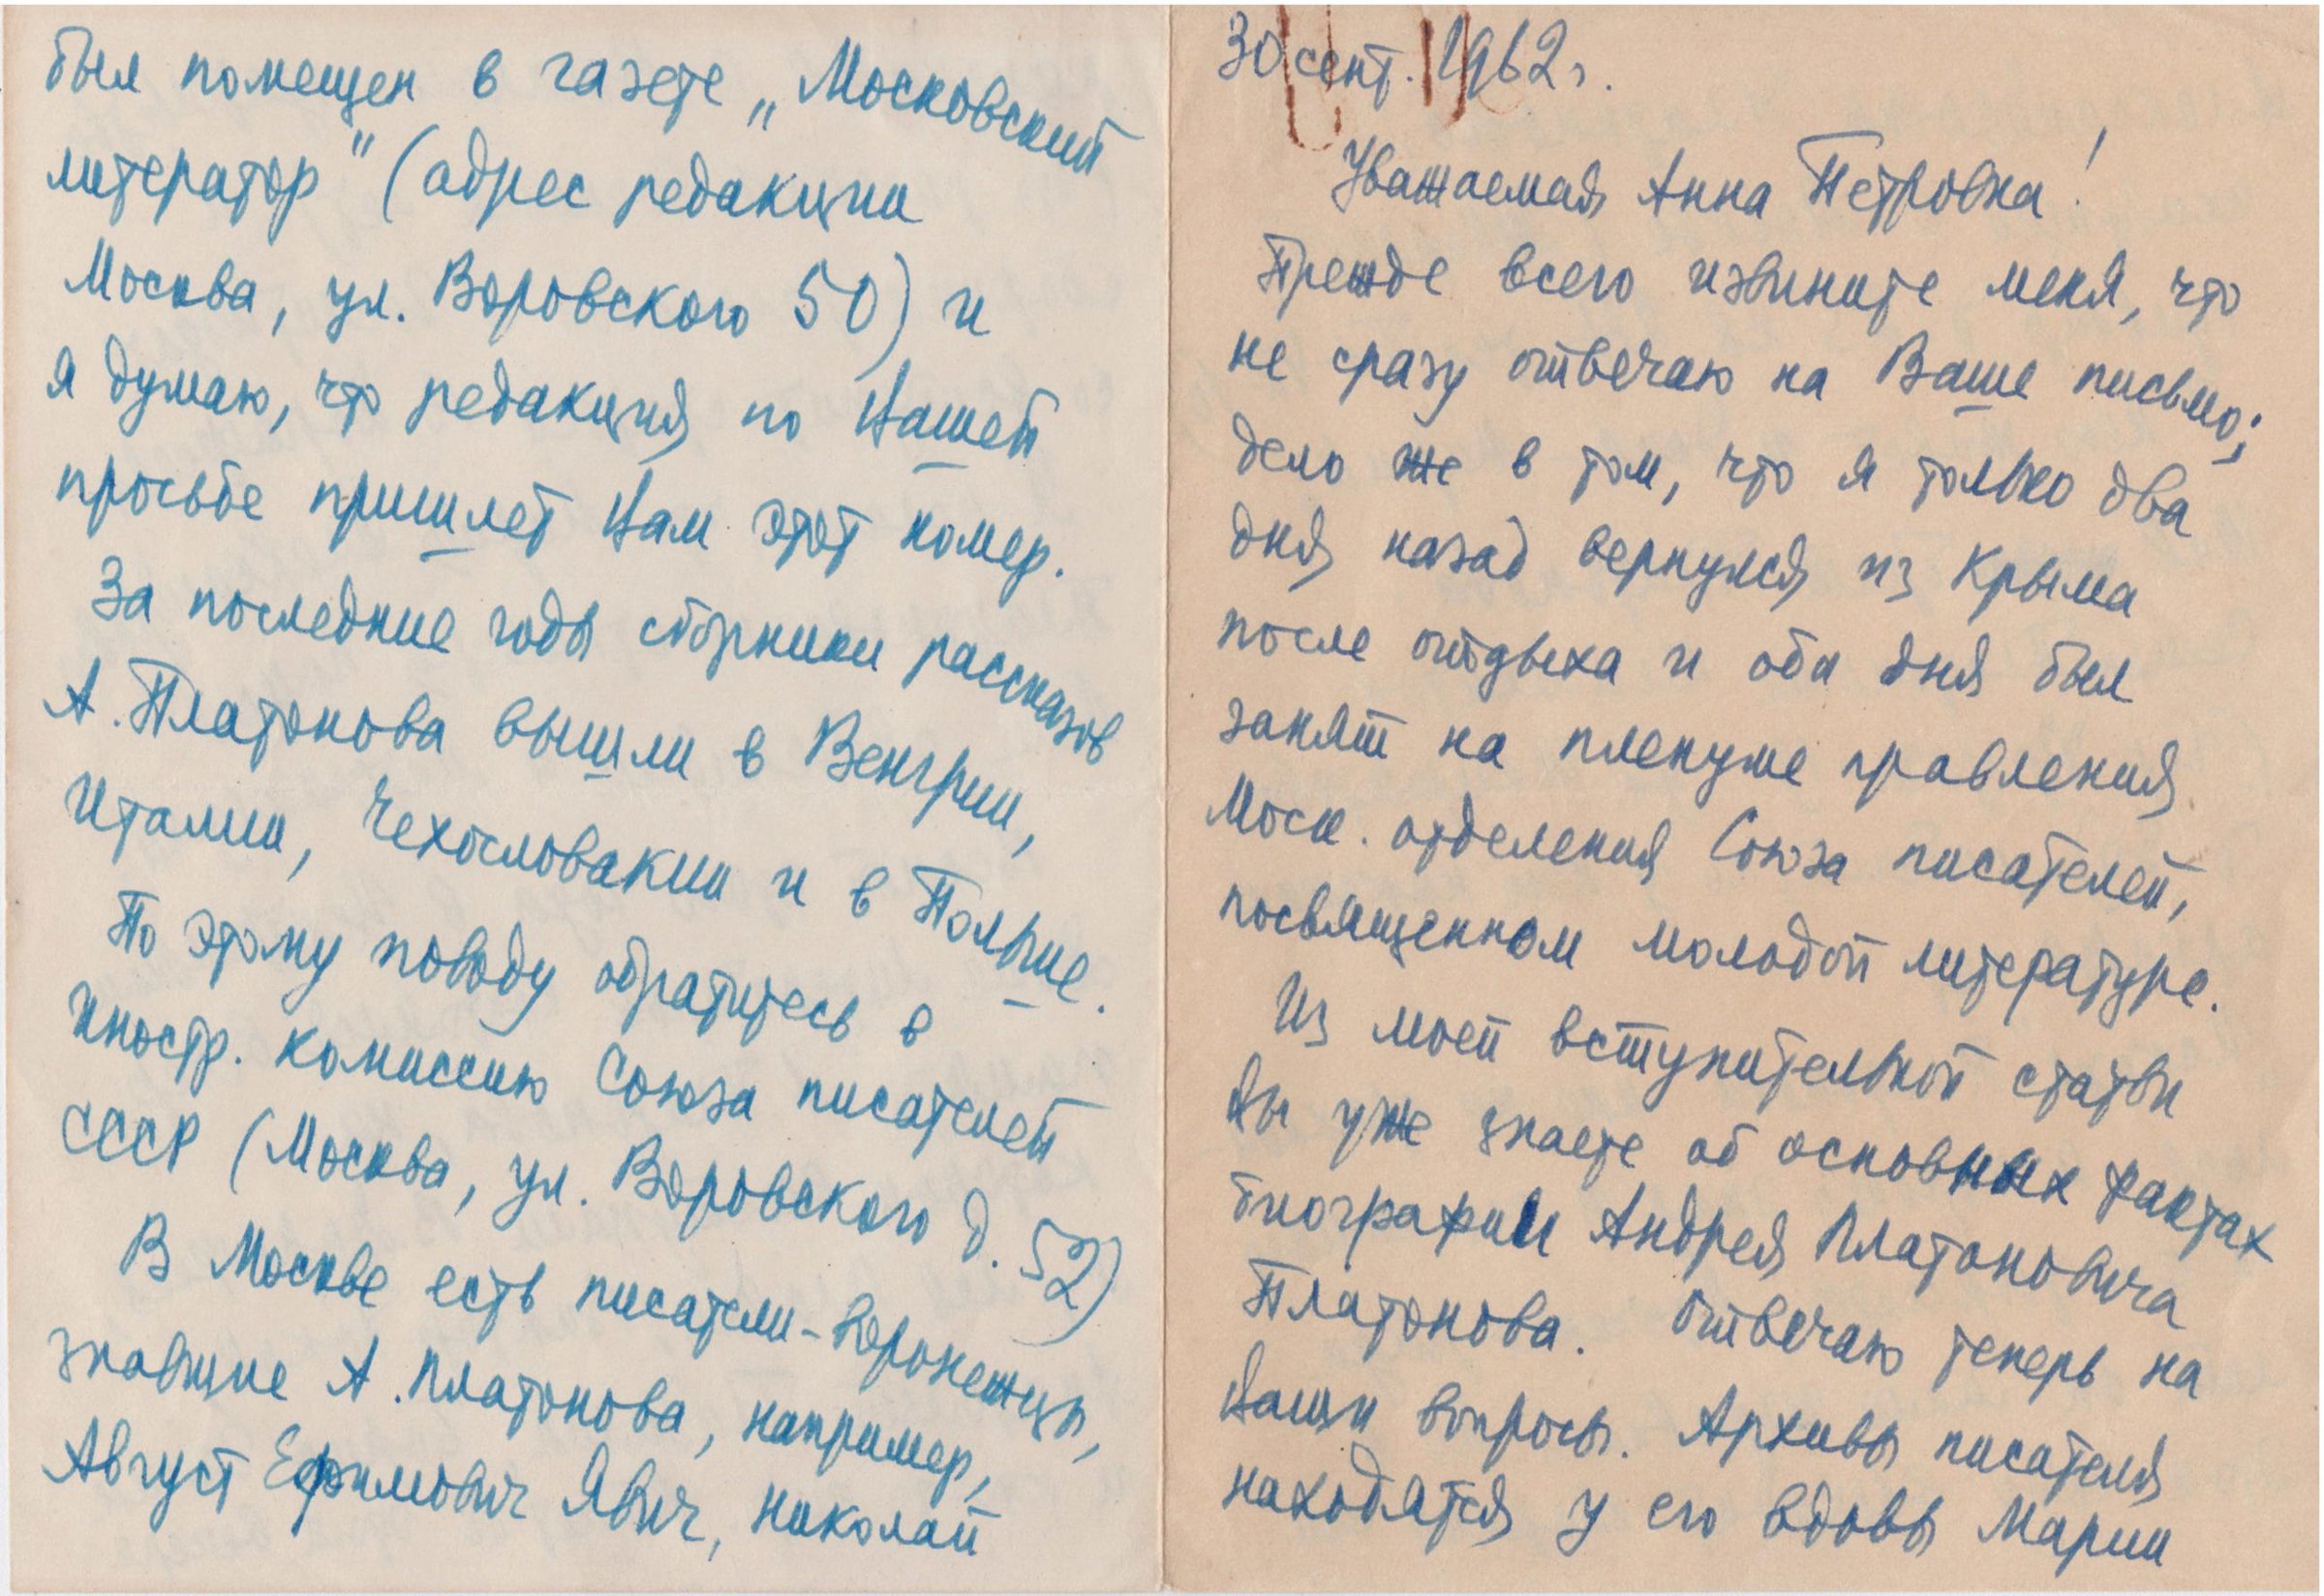 был помещен в газете „Московский
литератор" (адрес редакции
Москва, ул. Воровского 50) и
я думаю, что редакция по Вашей
просьбе пришлет Вам этот номер.
За последние годы сборники рассказов
А. Платонова вышли в Венгрии,
Италии, Чехословакии и в Польше.
По этому поводу обратитесь в
Иностр. комиссию Союза писателей
СССР (Москва, ул. Воровского д. 52)
В Москве есть писатели-воронежцы,
знавшие А. Платонова, например,
Август Ефимович Явич, Николай
30 сент. 1962 г.
Уважаемая Анна Петровна!
Прежде всего извините меня, что
не сразу отвечаю на Ваше письмо;
дело же в том, что я только два
дня назад вернулся из Крыма
после отдыха и оба дня был
занят на пленуме правления
Моск. отделения Союза писателей,
посвященном молодой литературе.
Из моей вступительной статьи
Вы уже знаете об основных фактах
биографии Андрея Платоновича
Платонова. Отвечаю теперь на
Ваши вопросы. Архивы писателя
находятся у его вдовы Марии